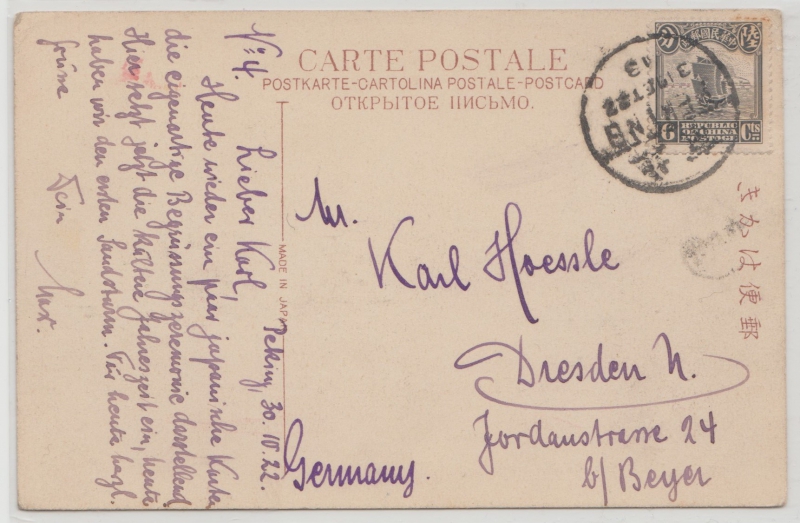 CARTE POSTALE
POSTKARTE-CARTOLINA POSTALE-POSTCARD
ОТКРЫТОЕ ПИСЬМО.
MADE IN JAPAN
きかは便郵
中華民國郵政
REPUBLIC
OF CHINA
POSTAGE
6 Cts
PEKING
No 4.
Peking, 30.10.22.
Lieber Karl,
Heute wieder ein paar japanische Karten
die eigenartige Begrüssungszeremonie darstellend.
Hier setzt jetzt die kältere Jahreszeit ein, heute
haben wir den ersten Sandsturm. Für heute hrzl.
Grüsse
Dein
Max.
Mr.
Karl Hoessle
Dresden N.
Jordanstrasse 24
b/ Beyer
Germany.